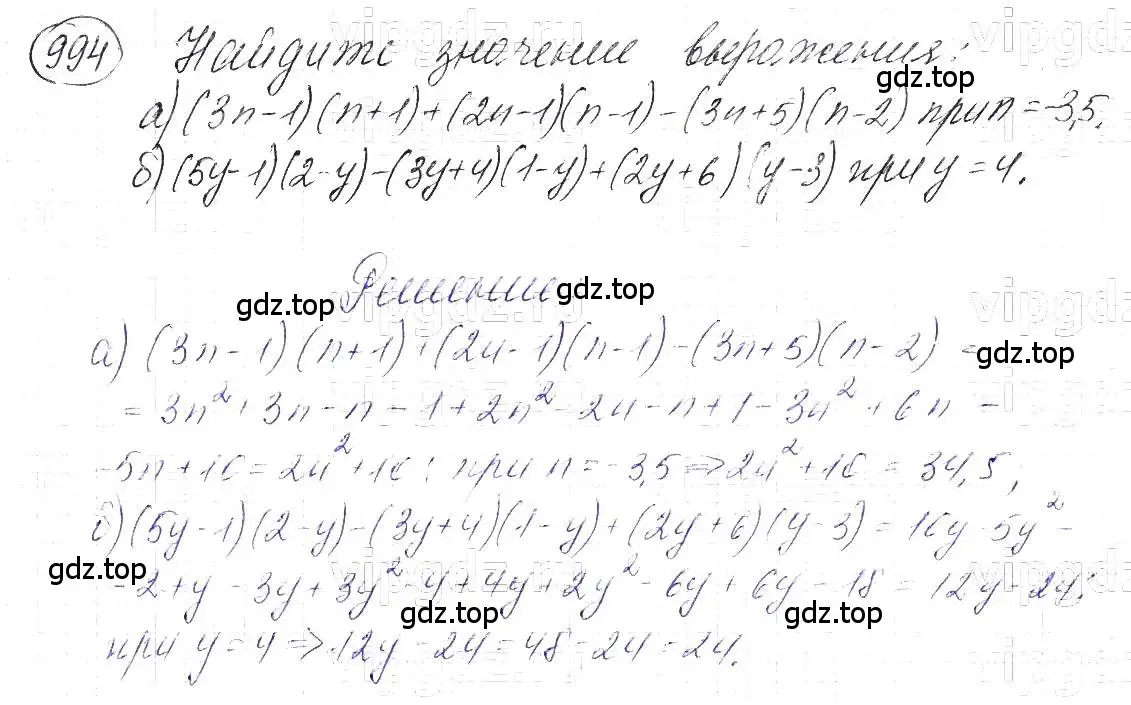 994 Найдите значение выражения:
а) (3n-1)(n+1)+(2n-1)(n-1)-(3n+5)(n-2) при n=-3,5.
б) (5y-1)(2-y)-(3y+4)(1-y)+(2y+6)(y-3) при y=4.
Решение
а) (3n-1)(n+1)+(2n-1)(n-1)-(3n+5)(n-2) =
= 3n²+3n-n-1+2n²-2n-n+1-3n²+6n-
-5n+10=2n²+10; при n=-3,5 => 2n²+10 = 34,5;
б) (5y-1)(2-y)-(3y+4)(1-y)+(2y+6)(y-3) = 10y-5y²-
-2+y-3y+3y²-4+4y+2y²-6y+6y-18 = 12y-24;
при y=4 => 12y-24=48-24=24.
gdz.top
gdz.top
gdz.top
gdz.top
gdz.top
gdz.top
gdz.top
vipgdz.ru
vipgdz
vipgdz